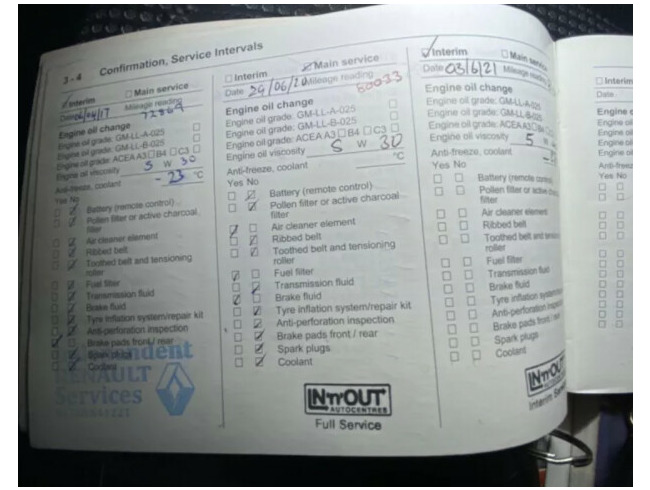 3 - 4 Confirmation, Service Intervals
Interim Main service
Mileage reading
72869
Engine oil change
Engine oil grade: GM-LL-A-025
Engine oil grade: GM-LL-B-025
Engine oil grade: ACEA A3 B4 C3
Engine oil viscosity 5 W 30
Anti-freeze, coolant
- 23 °C
Yes No
Battery (remote control)
Pollen filter or active charcoal
filter
Air cleaner element
Ribbed belt
Toothed belt and tensioning
roller
Fuel filter
Transmission fluid
Brake fluid
Tyre inflation system/repair kit
Anti-perforation inspection
Brake pads front / rear
Spark plugs
Coolant
RENAULT
Services
Interim Main service
Date 29/06/20 Mileage reading
80033
Engine oil change
Engine oil grade: GM-LL-A-025
Engine oil grade: GM-LL-B-025
Engine oil grade: ACEA A3 B4 C3
Engine oil viscosity 5 W 30
Anti-freeze, coolant °C
Yes No
Battery (remote control)
Pollen filter or active charcoal
filter
Air cleaner element
Ribbed belt
Toothed belt and tensioning
roller
Fuel filter
Transmission fluid
Brake fluid
Tyre inflation system/repair kit
Anti-perforation inspection
Brake pads front / rear
Spark plugs
Coolant
IN'n'OUT
AUTOCENTRES
Full Service
Interim Main
Date 03/6/21 Mileage
Engine oil change
Engine oil grade: GM-LL-A-025
Engine oil grade: GM-LL-B-025
Engine oil grade: ACEA A3 B4
Engine oil viscosity 5 W
Anti-freeze, coolant
Yes No
Battery (remote
Pollen filter or active
filter
Air cleaner element
Ribbed belt
Toothed belt and
roller
Fuel filter
Transmission fluid
Brake fluid
Tyre inflation
Anti-perforation
Brake pads front /
Spark plugs
Coolant
Interim
Interim
Date
Engine
Yes No